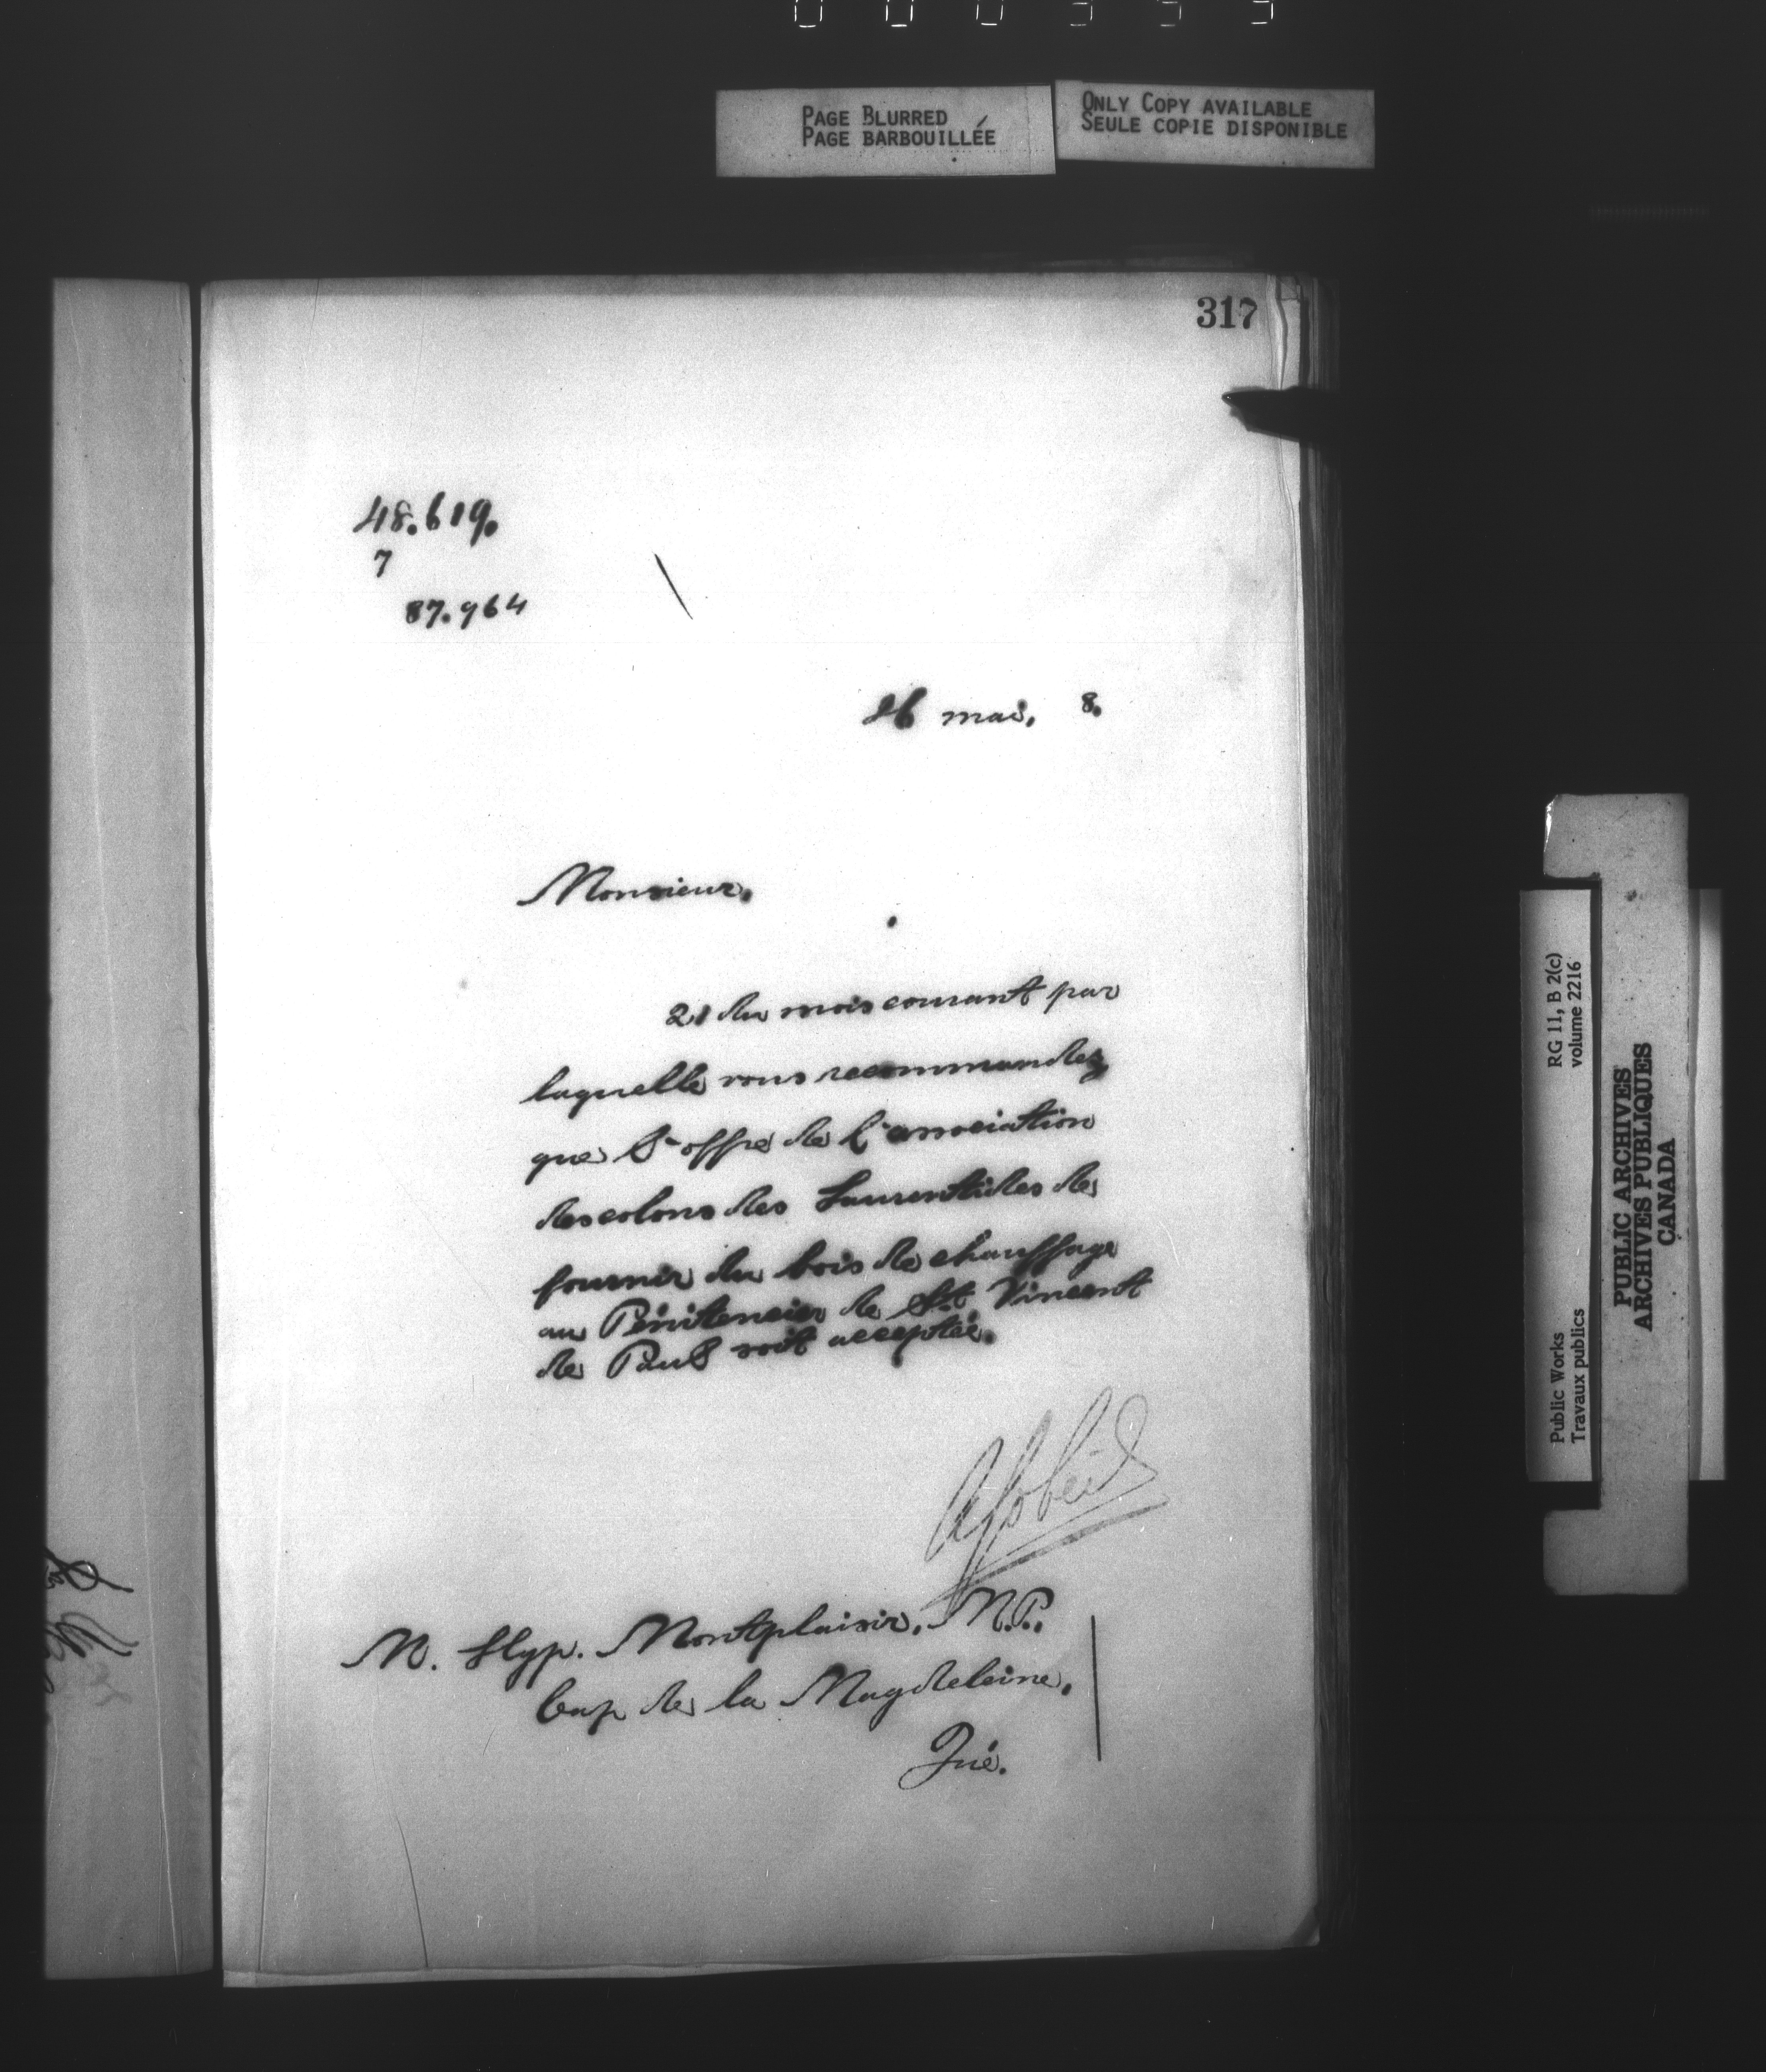 PAGE BLURRED
PAGE BARBOUILLÉE
ONLY COPY AVAILABLE
SEULE COPIE DISPONIBLE
317
48.619.
7
87.964
26 mai, 8.
Monsieur,
21 du mois courant par
laquelle vous recommandez
que l'offre de l'association
des colons des Laurentides de
fournir du bois de chauffage
au Pénitencier de St. Vincent
de Paul soit acceptée.
M. Hyp. Montplaisir, M.P.,
Cap de la Magdeleine,
Qué.
RG 11, B 2(c)
volume 2216
Public Works
Travaux publics
PUBLIC ARCHIVES
ARCHIVES PUBLIQUES
CANADA